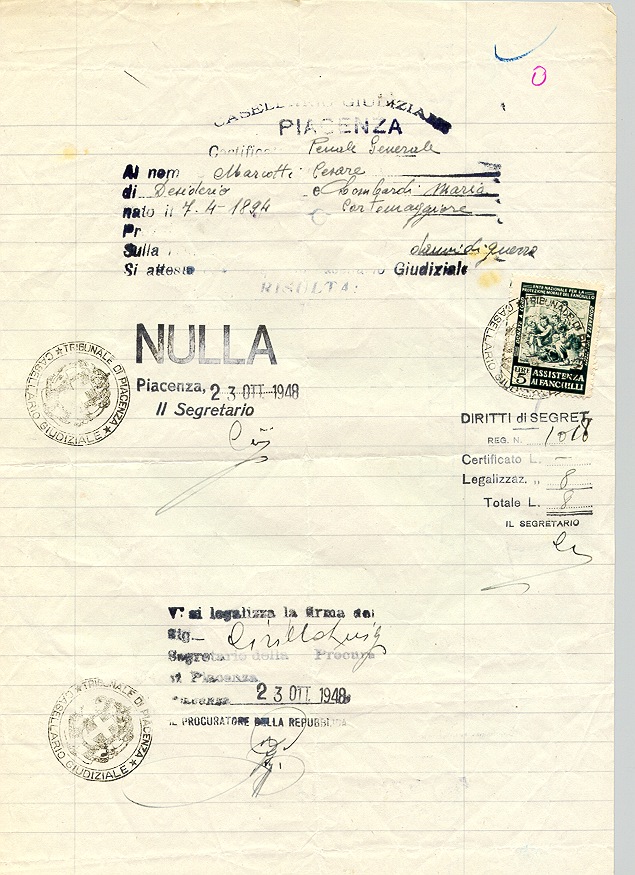 O
CASELLARIO GIUDIZIALE
PIACENZA
Certificato Penale Generale
Al nom Mariotti Cesare
di Desiderio e Lombardi Maria
nato il 7-4-1894 Cortemaggiore
Pr
Sulla danni di guerra
Si attesta Giudiziale
RISULTA:
NULLA
Piacenza, 23 OTT 1948
Il Segretario
TRIBUNALE DI PIACENZA
CASELLARIO GIUDIZIALE
ENTE NAZIONALE PER LA
PROTEZIONE MORALE DEL FANCIULLO
LIRE 5
ASSISTENZA
AI FANCIULLI
TRIBUNALE DI
CASELLARIO
DIRITTI di SEGRET
REG. N. 1018
Certificato L. —
Legalizzaz. „ 8
Totale L. 8
IL SEGRETARIO
V° si legalizza la firma del
Sig.
Segretario della Procura
di Piacenza
Piacenza 23 OTT 1948
IL PROCURATORE DELLA REPUBBLICA
TRIBUNALE DI PIACENZA
CASELLARIO GIUDIZIALE